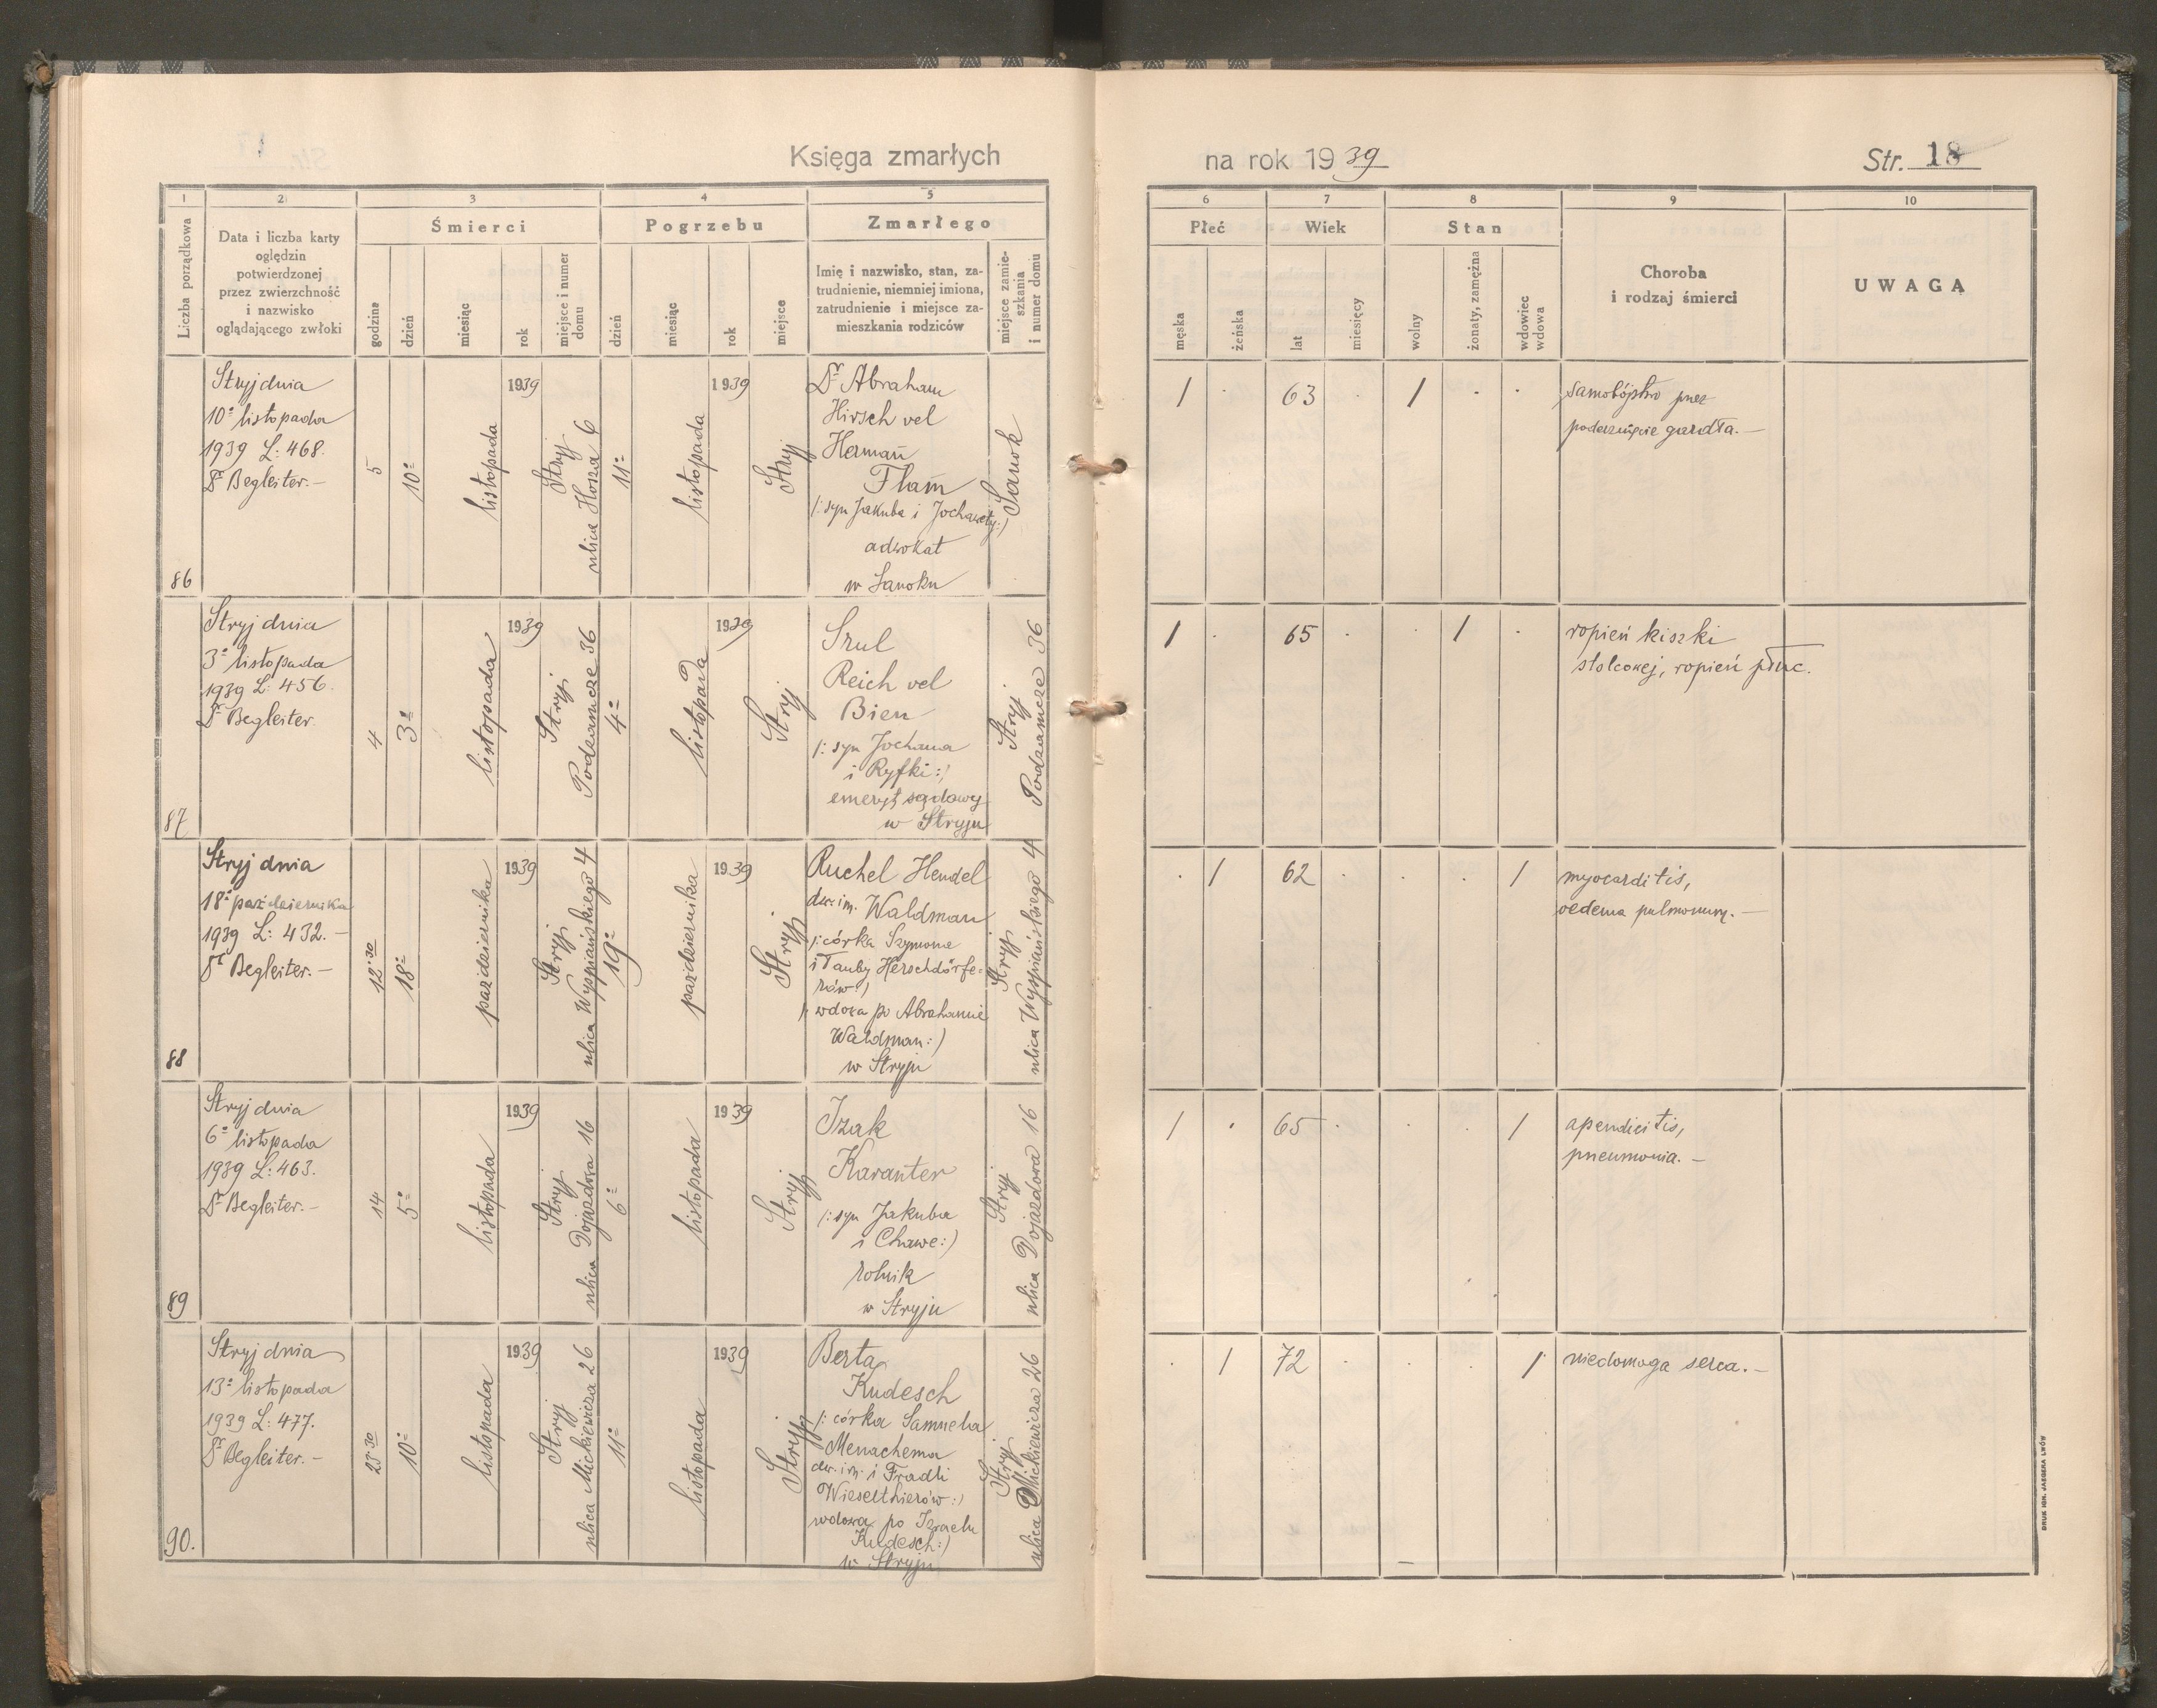 Księga zmarłych
na rok 1939
Str. 18
1
2
3
4
5
6
7
8
9
10
Liczba porządkowa
Data i liczba karty
oględzin
potwierdzonej
przez zwierzchność
i nazwisko
oglądającego zwłoki
Śmierci
godzina
dzień
miesiąc
rok
miejsce i numer
domu
Pogrzebu
dzień
miesiąc
rok
miejsce
Zmarłego
Imię i nazwisko, stan, za-
trudnienie, niemniej imiona,
zatrudnienie i miejsce za-
mieszkania rodziców
miejsce zamie-
szkania
i numer domu
Płeć
męska
żeńska
Wiek
lat
miesięcy
Stan
wolny
żonaty, zamężna
wdowiec
wdowa
Choroba
i rodzaj śmierci
UWAGA
86
Stryj dnia
10º listopada
1939 L: 468.
Dr Begleiter.-
5
10º
listopada
1939
Stryj
ulica Hoża 6
11º
listopada
1939
Stryj
Dr Abraham
Hirsch vel
Herman
Flam
/: syn Jakuba i Jochawety:/
adwokat
w Sanoku
Sanok
1 · 63 · 1 · ·
samobójstwo przez
poderznięcie gardła.-
87
Stryj dnia
3º listopada
1939 L: 456.
Dr Begleiter.
4
3º
listopada
1939
Stryj
Podzamcze 36
4º
listopada
1939
Stryj
Srul
Reich vel
Bien
/: syn Jochana
i Ryfki:/
emeryt sądowy
w Stryju
Stryj
Podzamcze 36
1 · 65 · · 1 ·
ropień kiszki
stolcowej, ropień płuc.
88
Stryj dnia
18º października
1939 L: 432.-
Dr Begleiter.-
12·30
18º
października
1939
Stryj
ulica Wyspiańskiego 4
19º
października
1939
Stryj
Ruchel Hendel
dw. im. Waldman
/: córka Szymona
i Tauby Herschdörfe-
rów:/
/: wdowa po Abrahamie
Waldman:/
w Stryju
Stryj
ulica Wyspiańskiego 4
· 1 62 · · · 1
myocarditis,
oedema pulmonum.-
89
Stryj dnia
6º listopada
1939 L: 463.
Dr Begleiter.-
14
5º
listopada
1939
Stryj
ulica Dojazdowa 16
6º
listopada
1939
Stryj
Izak
Karanter
/: syn Jakuba
i Chawe:/
rolnik
w Stryju
Stryj
ulica Dojazdowa 16
1 · 65 · · · 1
apendicitis,
pneumonia.-
90.
Stryj dnia
13º listopada
1939 L: 477.
Dr Begleiter.-
23·30
10º
listopada
1939
Stryj
ulica Mickiewicza 26
11º
listopada
1939
Stryj
Berta
Kudesch
/: córka Samuela
Menachema
dw. im. i Fradli
Wieselthierów:/
wdowa po Izraelu
Kudesch:/
w Stryju
Stryj
ulica Mickiewicza 26
· 1 72 · · · 1
niedomoga serca.-
DRUK IGN. JAEGERA LWÓW